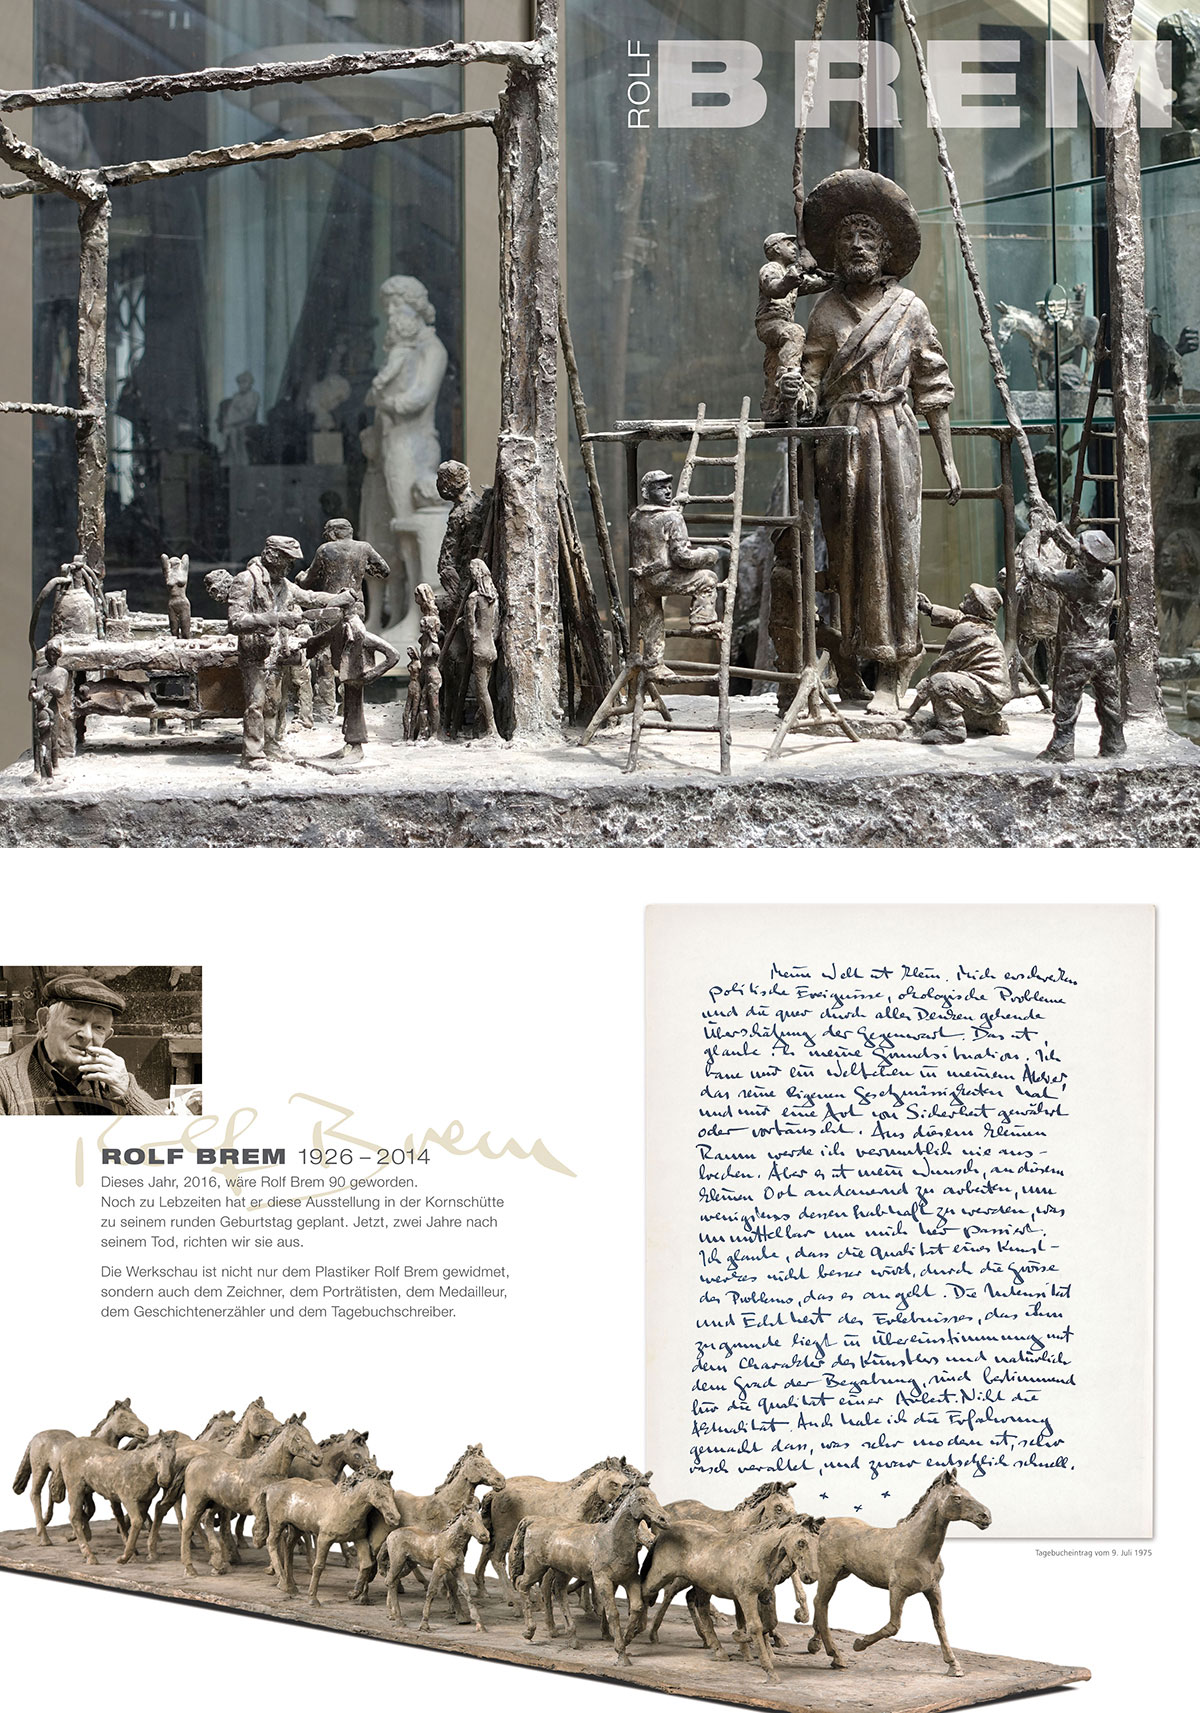 ROLF
BREM
Rolf Brem
ROLF BREM 1926 – 2014
Dieses Jahr, 2016, wäre Rolf Brem 90 geworden.
Noch zu Lebzeiten hat er diese Ausstellung in der Kornschütte
zu seinem runden Geburtstag geplant. Jetzt, zwei Jahre nach
seinem Tod, richten wir sie aus.
Die Werkschau ist nicht nur dem Plastiker Rolf Brem gewidmet,
sondern auch dem Zeichner, dem Porträtisten, dem Medailleur,
dem Geschichtenerzähler und dem Tagebuchschreiber.
Meine Welt ist klein. Mich erschrecken
politische Ereignisse, ökologische Probleme
und die quer durch alles Denken gehende
Überschätzung der Gegenwart. Das ist,
glaube ich meine Grundsituation. Ich
baue mir ein Weltchen in meinem Atelier,
das seine eigenen Gesetzmässigkeiten hat
und mir eine Art von Sicherheit gewährt
oder vortäuscht. Aus diesem kleinen
Raum werde ich vermutlich nie aus-
brechen. Aber es ist mein Wunsch, an diesem
kleinen Ort andauernd zu arbeiten, um
wenigstens dessen habhaft zu werden, was
unmittelbar um mich her passiert.
Ich glaube, dass die Qualität eines Kunst-
werkes nicht besser wird, durch die Grösse
des Problems, das es angeht. Die Intensität
und Echtheit des Erlebnisses, das ihm
zugrunde liegt in Übereinstimmung mit
dem Charakter des Künstlers und natürlich
dem Grad der Begabung, sind bestimmend
für die Qualität einer Arbeit. Nicht die
Aktualität. Auch habe ich die Erfahrung
gemacht dass, was sehr modern ist, sehr
rasch veraltet, und zwar entsetzlich schnell.
Tagebucheintrag vom 9. Juli 1975